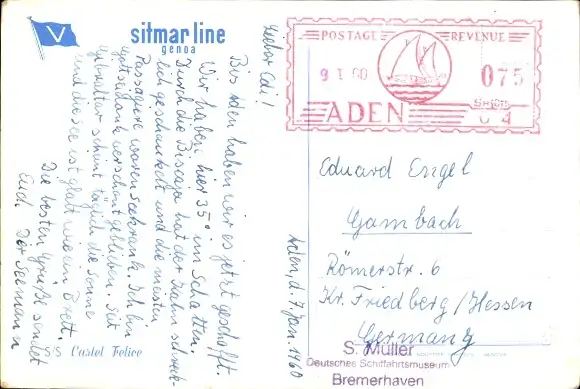 V
sitmar line
genoa
Lieber Edi!
Bis Aden haben wir es jetzt geschafft.
Wir haben hier 35° im Schatten.
Durch die Biscaja hat der Kahn schreck-
lich geschaukelt und die meisten
Passagiere waren seekrank. Ich bin
Gottseidank verschont geblieben. Seit
Gibraltar scheint täglich die Sonne
und die See ist glatt wie ein Brett.
Die besten Grüße sendet
Euch Der Seemann
S/S Castel Felice
Aden, d. 7. Jan. 1960
POSTAGE REVENUE
9 I 60
075
ADEN
U 4
Eduard Engel
Gambach
Römerstr. 6
Kr. Friedberg/Hessen
Germany
S. Müller
Deutsches Schiffahrtsmuseum
Bremerhaven